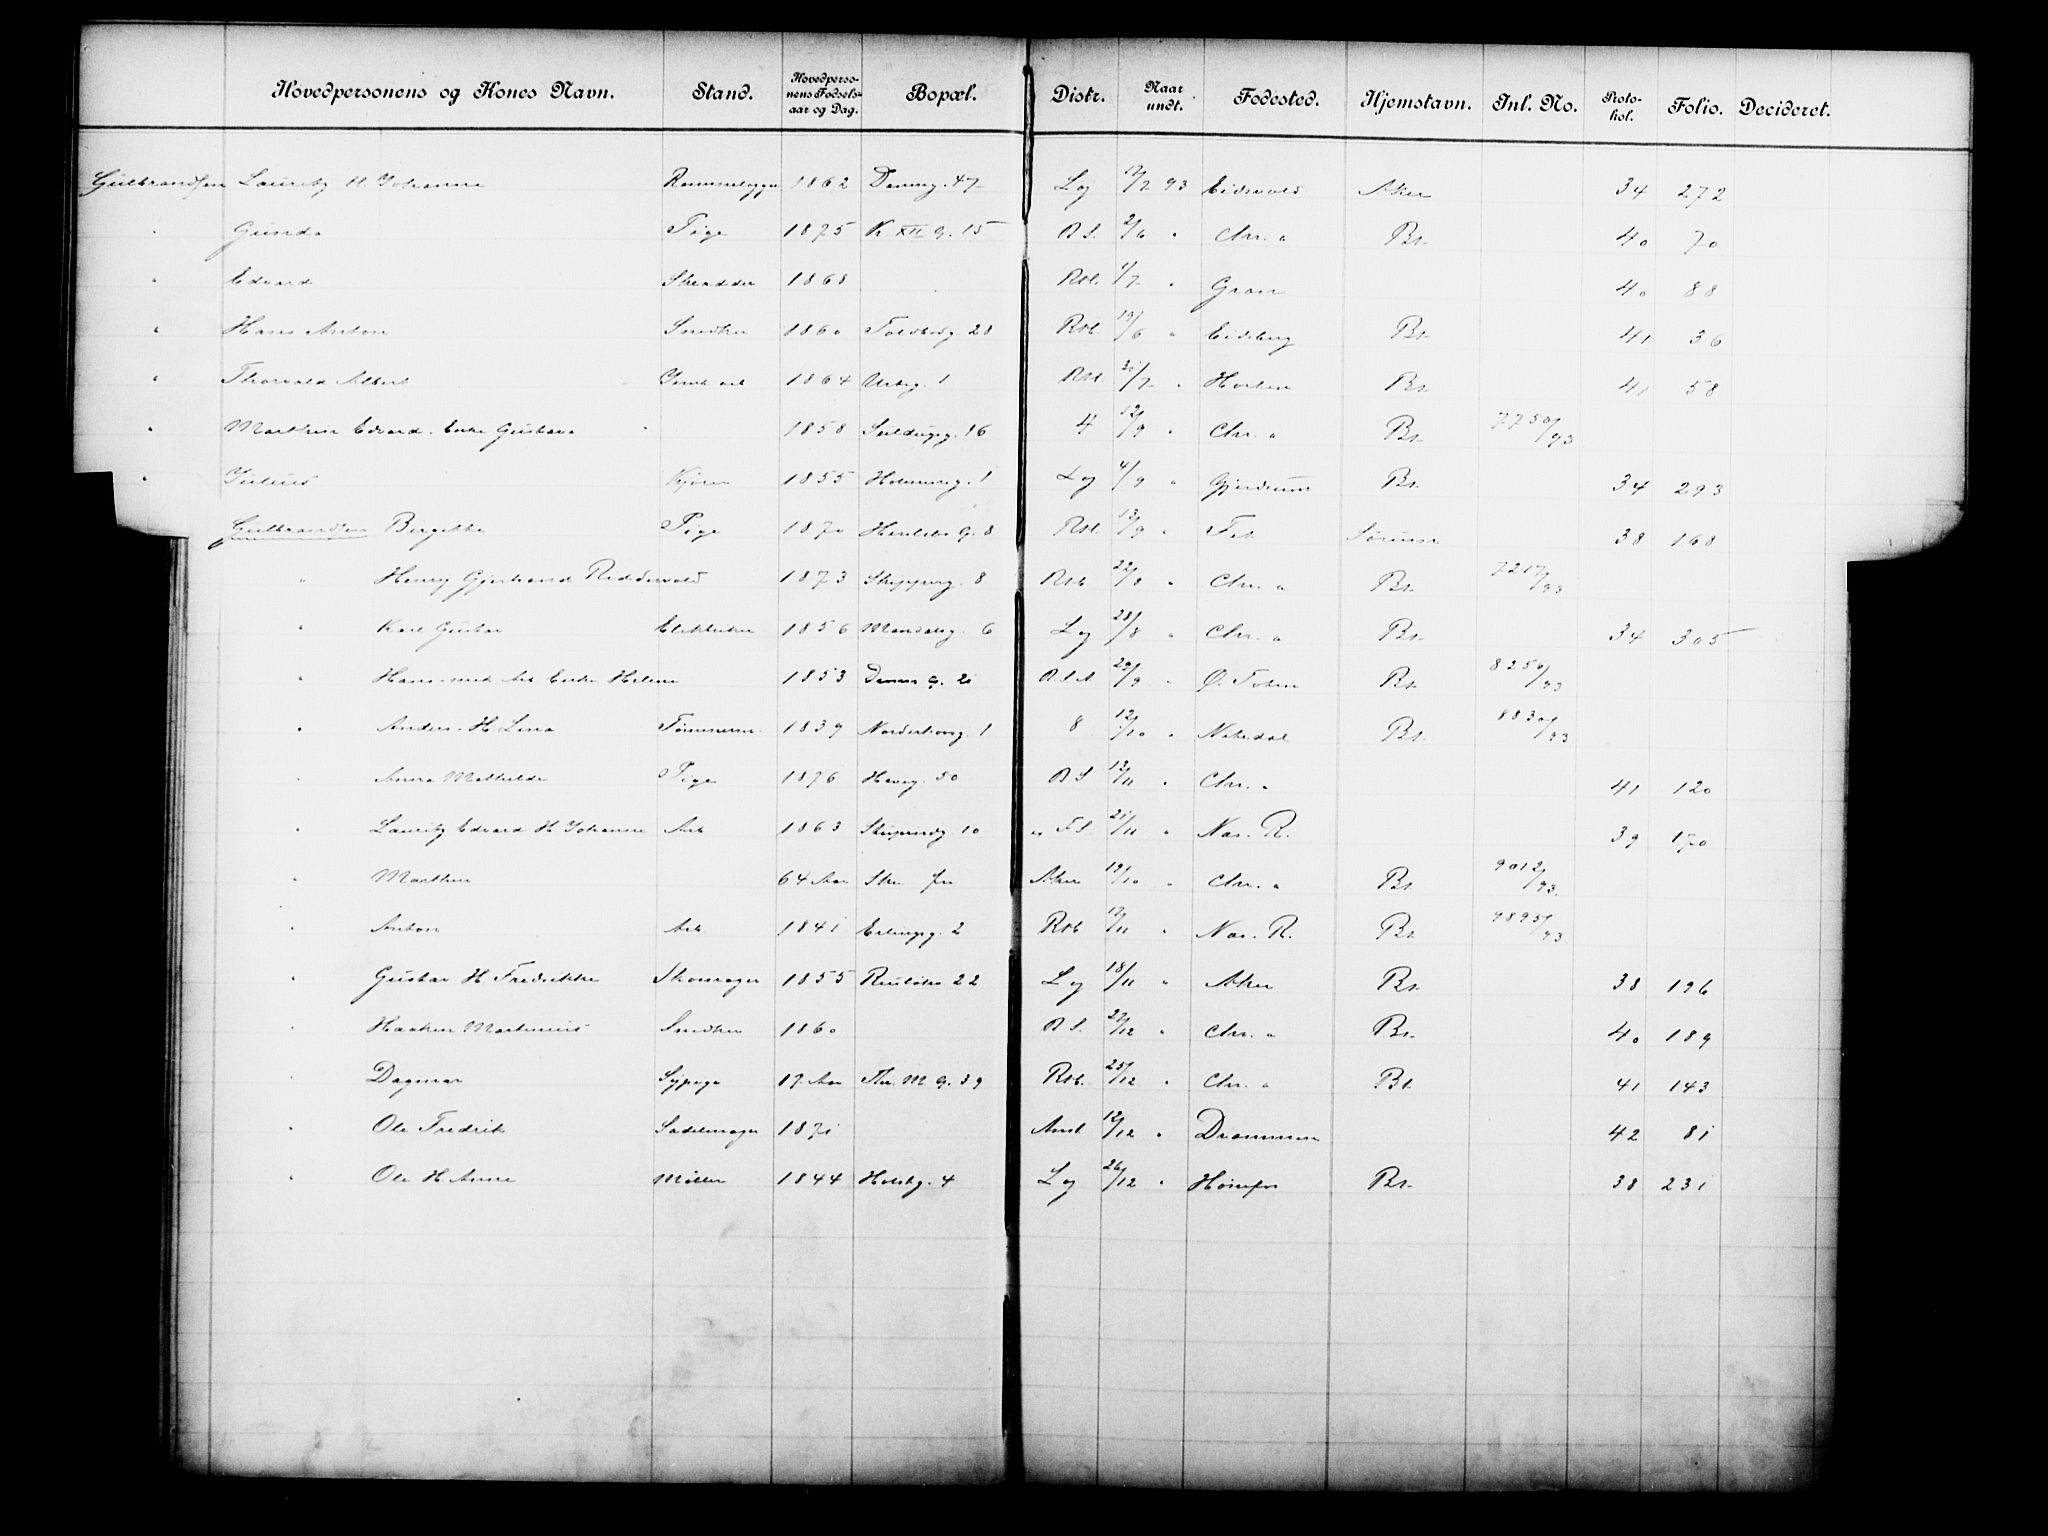 Hovedpersonens og Kones Navn. Stand. Hovedperso-nens Fødsels-aar og Dag. Bopæl. Distr. Naar undt. Fødested. Hjemstavn. Inl. No. Proto-kol. Folio. Decideret.
Gulbrandsen Lauritz H. Johanne 1862 Lg 93 Eidsvold Aker 34 272
" Gunda Pige 1875 K. XII G. 15 B S. 2/6 " Chr. a Bt. 40 70
" Edvard Skrædder 1868 Rtl. 1/7 " Gran 40 88
" Hans Anton Snedker 1860 Toldbodg 28 19/6 " Eidsberg Bt. 41 36
" Thorvald Albert 1864 Urteg. 1 Rtl. 21/7 " Horten Bt. 41 58
" Marthin Edvard. Enke Gustava 1858 Seildugsg. 16 4 12/9 " Chr. a Bt. 7750/93
" Julius Kjører 1855 1 Lg 4/9 " Gjerdrum Bt. 34 293
Gulbrandsen Birgitte Pige 1870 G. 8 Rtl. 13/9 " Fet Sørum 38 168
" Henry Gjerhard Riddervold 1873 Skipperg. 8 22/8 " Chr. a Bt. 7217/93
" Karl Gustav Elektriker 1856 Mandalsg. 6 Lg 28/8 " Chr. a Bt. 34 305
" Hans Enke Helene 1853 G. 21 29/9 " Ø. Toten Bt. 8250/93
" Anders. H Lina Tømmerm. 1839 Norderhovsg. 1 8 12/10 " Nitedal Bt. 8830/93
" Anna Mathilde Pige 1876 50 B S 12/11 " Chr. a 41 120
" Lauritz Edvard H Johanne Arb 1863 10 21/11 " Nas. R. 39 170
" Marthin 64 Aar Aker 19/10 " Chr. a Bt 9012/93
" Anton Arb 1841 Erlingsg. 2 17/11 " Nas. R. Bt. 9895/93
" Gustav H Fredrikke Skomager 1855 22 Lg 18/11 " Aker Bt. 38 196
" Haaken Martinius Snedker 1860 B S. 27/12 " Chr. a Bt. 40 189
" Dagmar Sypige 17 Aar Thv. M G. 39 25/12 " Chr. a Bt 41 143
" Ole Fredrik Sadelmager 1871 12/12 " Drammen 42 81
" Ole H. Anne Møller 1844 Holstg. 4 Lg 26/12 " Hønefos Bt. 38 231